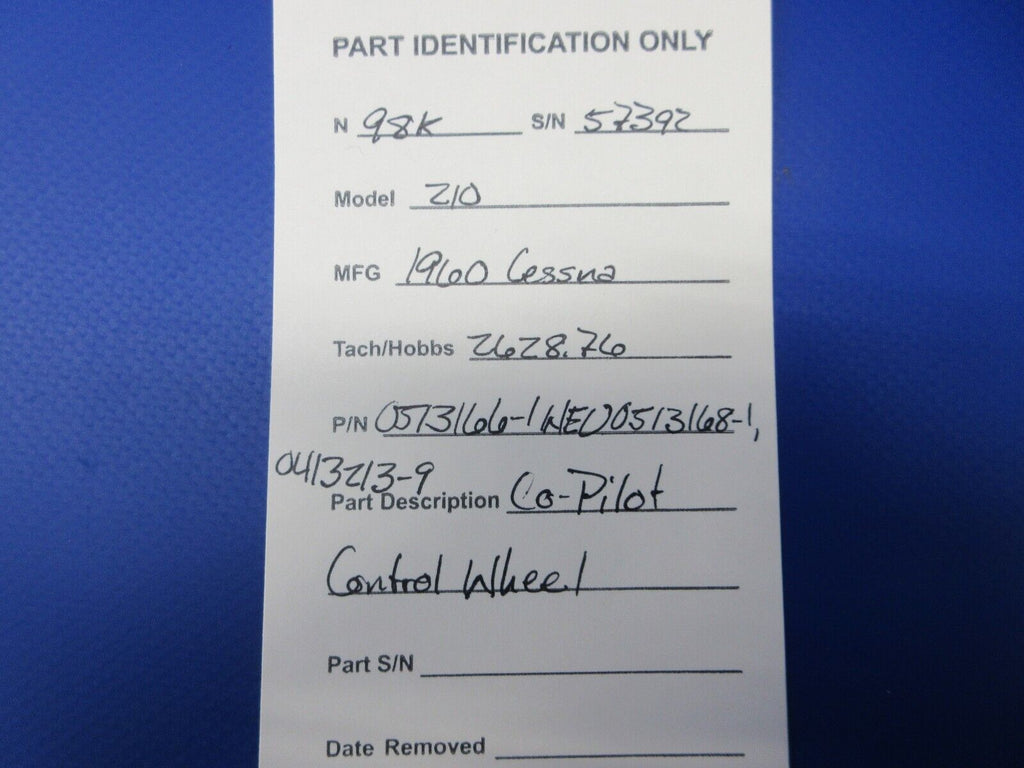 PART IDENTIFICATION ONLY
N 98K S/N 57392
Model 210
MFG 1960 Cessna
Tach/Hobbs 2628.76
P/N 0513166-1 WEU0513168-1,
0413213-9
Part Description Co-Pilot
Control Wheel
Part S/N
Date Removed